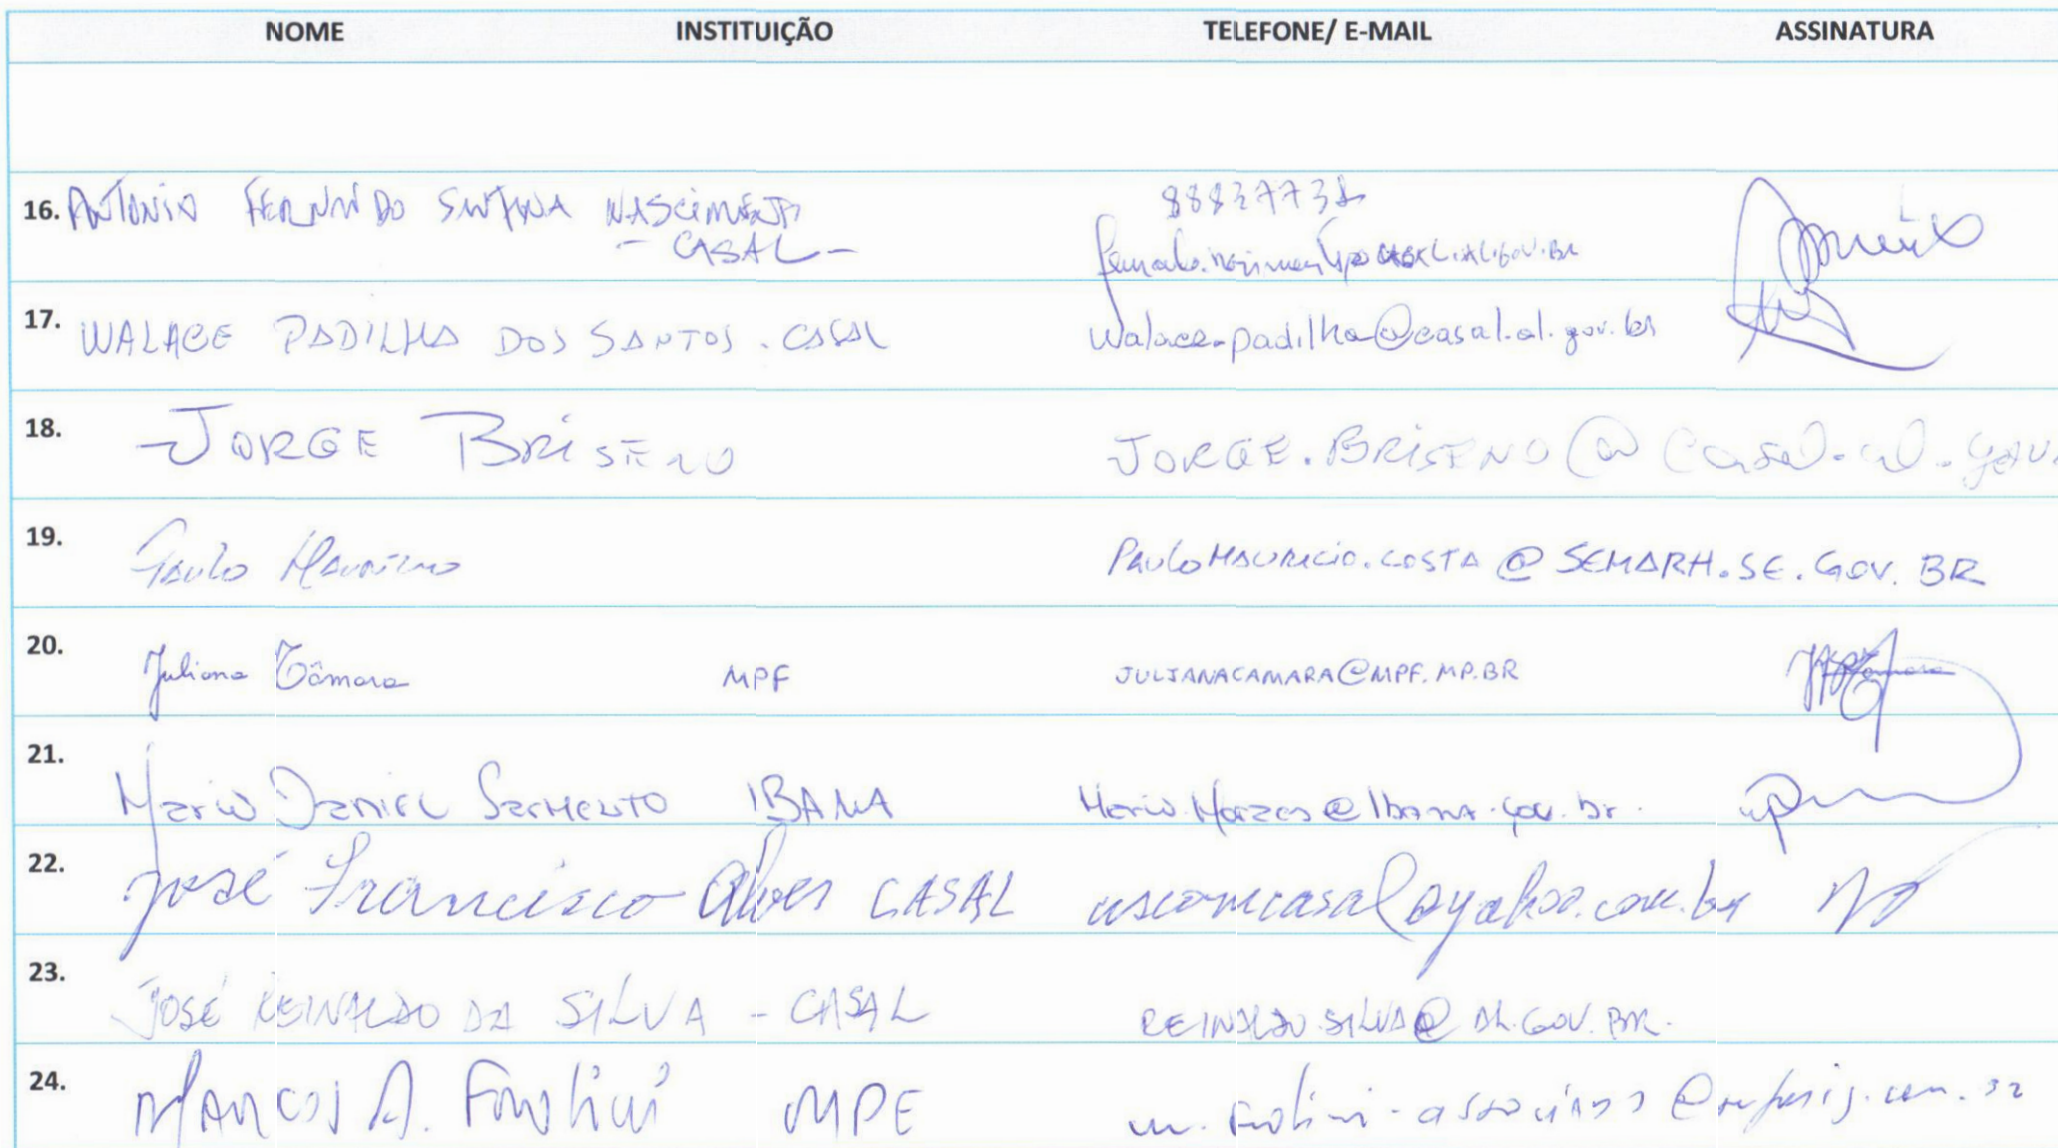 NOME INSTITUIÇÃO TELEFONE/ E-MAIL ASSINATURA
16. ANTONIO FERNANDO SANTANA NASCIMENTO 88837738
- CASAL -
17. WALACE PADILHA DOS SANTOS . CASAL walace.padilha@casal.al.gov.br
18. JORGE BRISENO JORGE.BRISENO@casal.al.gov.
19. Paulo Maurício PAULOMAURICIO.COSTA@SEMARH.SE.GOV.BR
20. Juliana Câmara MPF JULIANACAMARA@MPF.MP.BR
21. Mario Daniel Sarmento IBAMA
22. José Francisco Alves CASAL ascomcasal@yahoo.com.br
23. JOSÉ REINALDO DA SILVA - CASAL REINALDO.SILVA@AL.GOV.BR.
24. MARCOS A. MPE